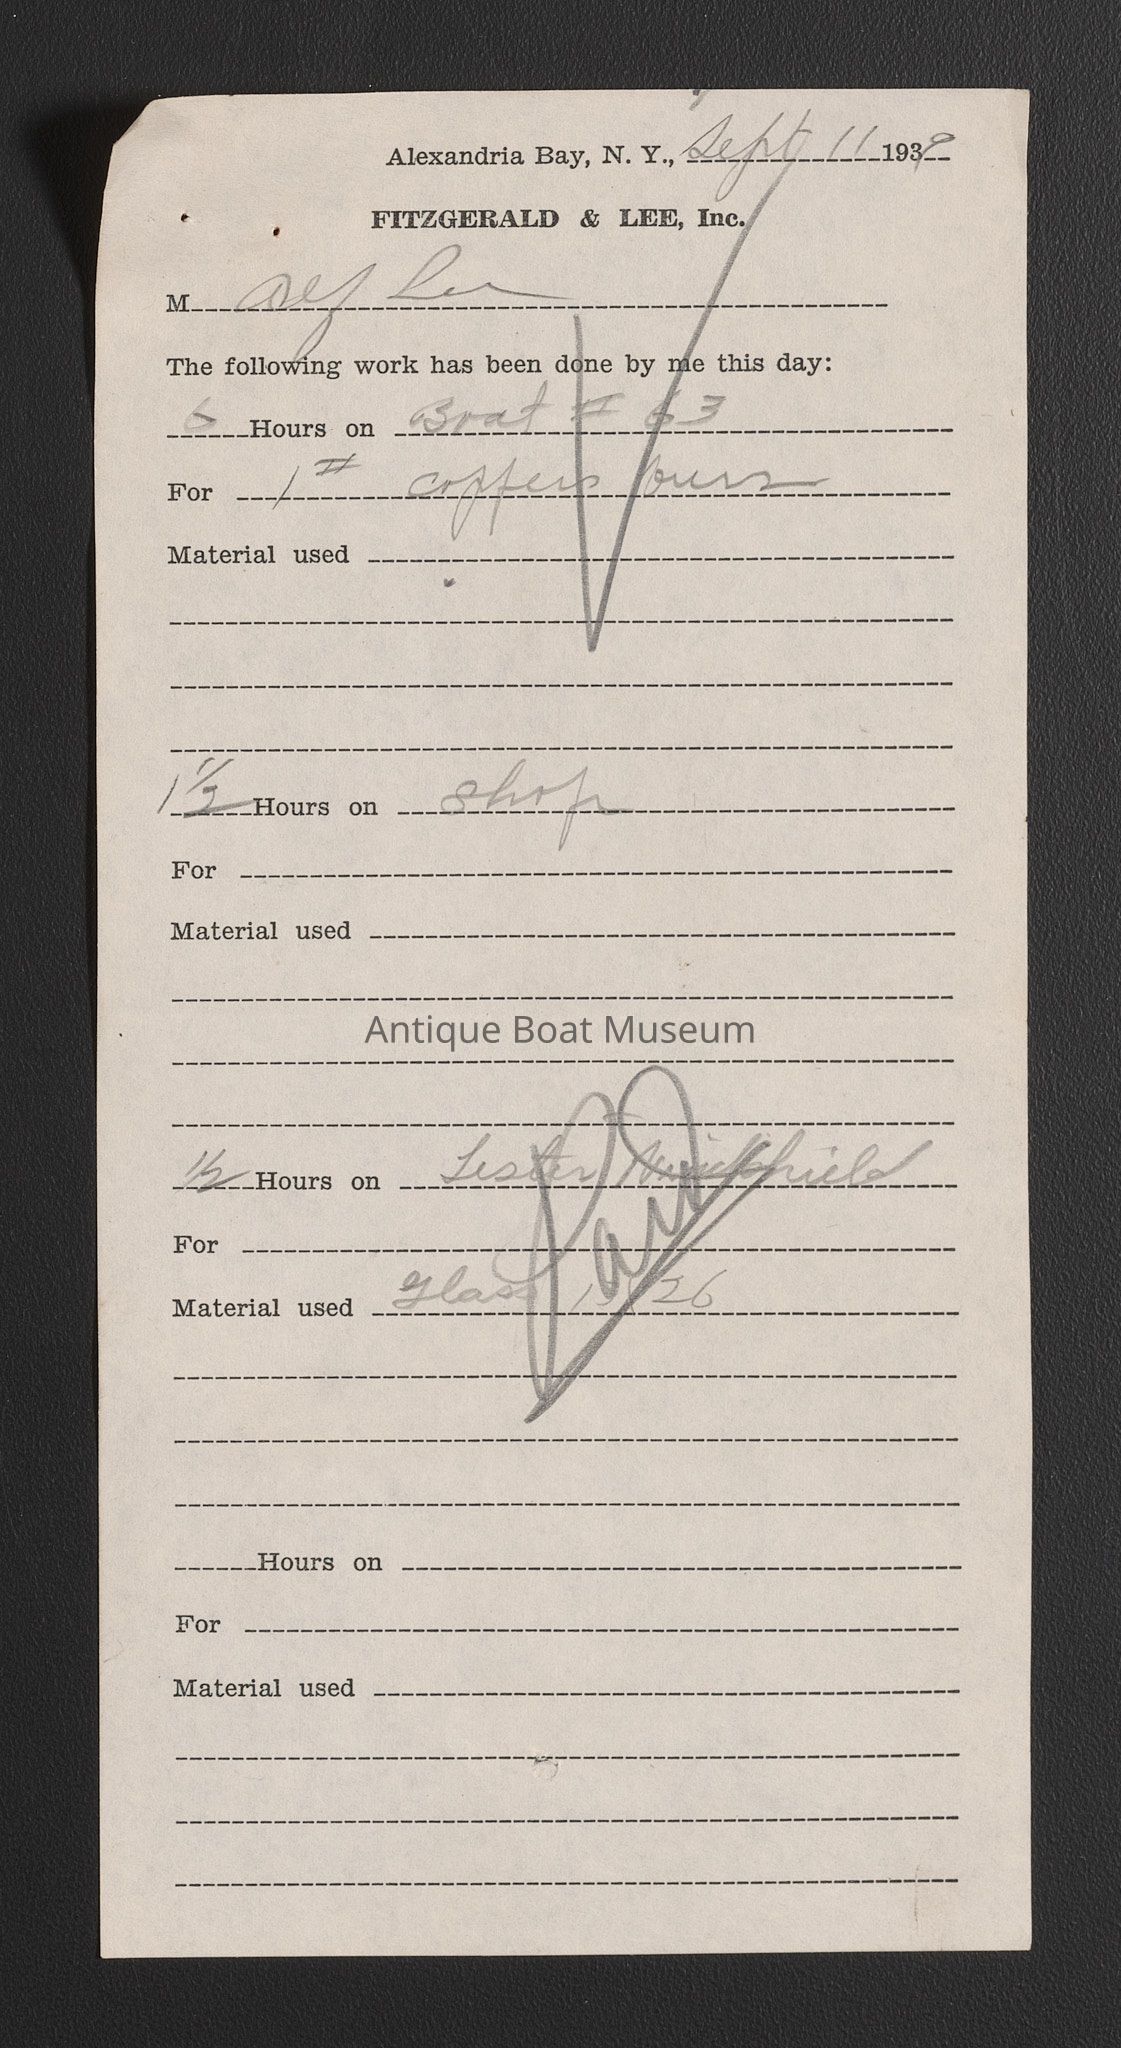 Alexandria Bay, N. Y., Sept 11 1939
FITZGERALD & LEE, Inc.
M Alf Lee
The following work has been done by me this day:
6 Hours on Boat # 63
For 1# copper burrs
Material used
1 1/2 Hours on Shop
For
Material used
Antique Boat Museum
1/2 Hours on Lester Windshield
For
Paid
Material used Glass 26
Hours on
For
Material used